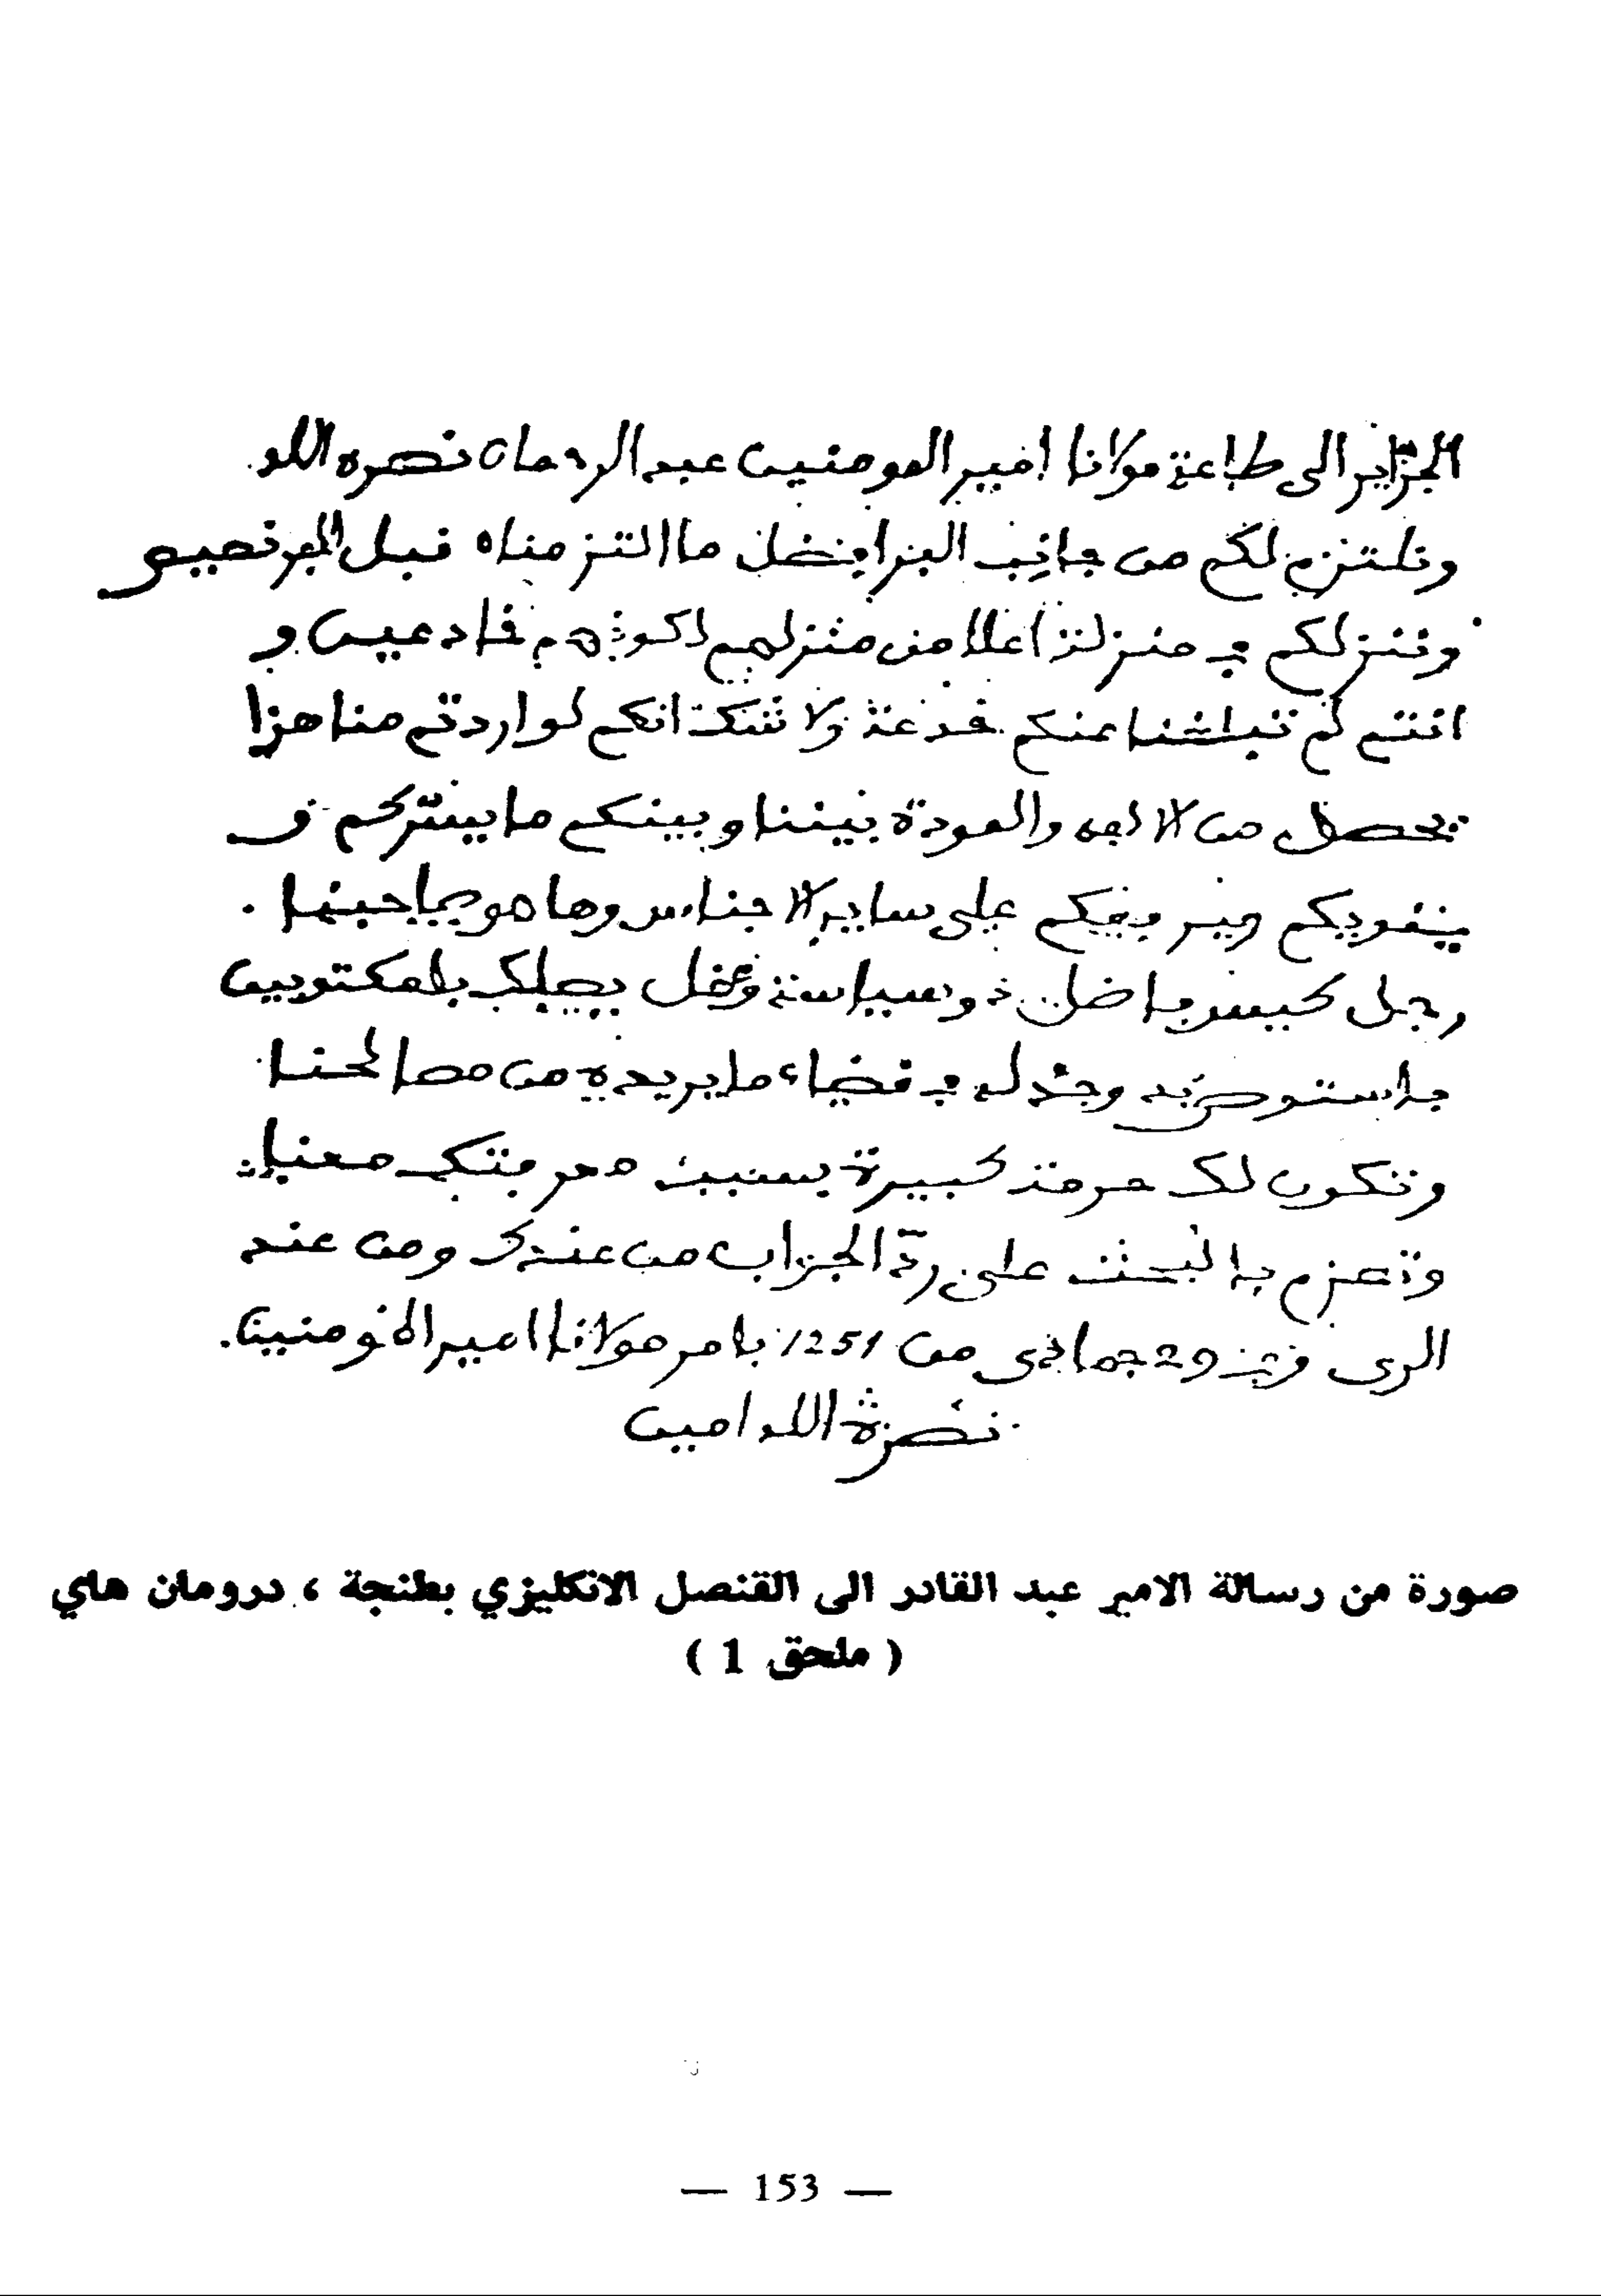 الجزاير الى طاعة مولانا امير المومنين عبد الرحمان نصره الله
ونلتزم لكم من جانب البر افضل ما التزمناه قبل الفرنصيو
وننزلكم في منزلة اعلا من منزلهم لكونهم خادعين و
انتم لم تبلغنا عنكم خدعة ولا شك انكم لو اردتم منا هذا
تحصل من الالفه والمودة بيننا وبينكم ما يسركم و
يقويكم على ساير الاجناس وها هو صاحبنا
رجل كيس فاضل ذو سياسة وعقل يصلك بالمكتوبين
فاستوص به وجد له في قضاء ما يريده من مصالحنا
وتكون لك حرمة كبيرة بسبب معرفتك معنا
وتعزم بالبحث على رد الجواب من عندك ومن عند
الري 29 جمادى من 1251 بامر مولانا امير المومنين
نصره الله امين
صورة من رسالة الامير عبد القادر الى القنصل الانكليزي بطنجة ، درومان هاي
( ملحق 1 )
— 153 —